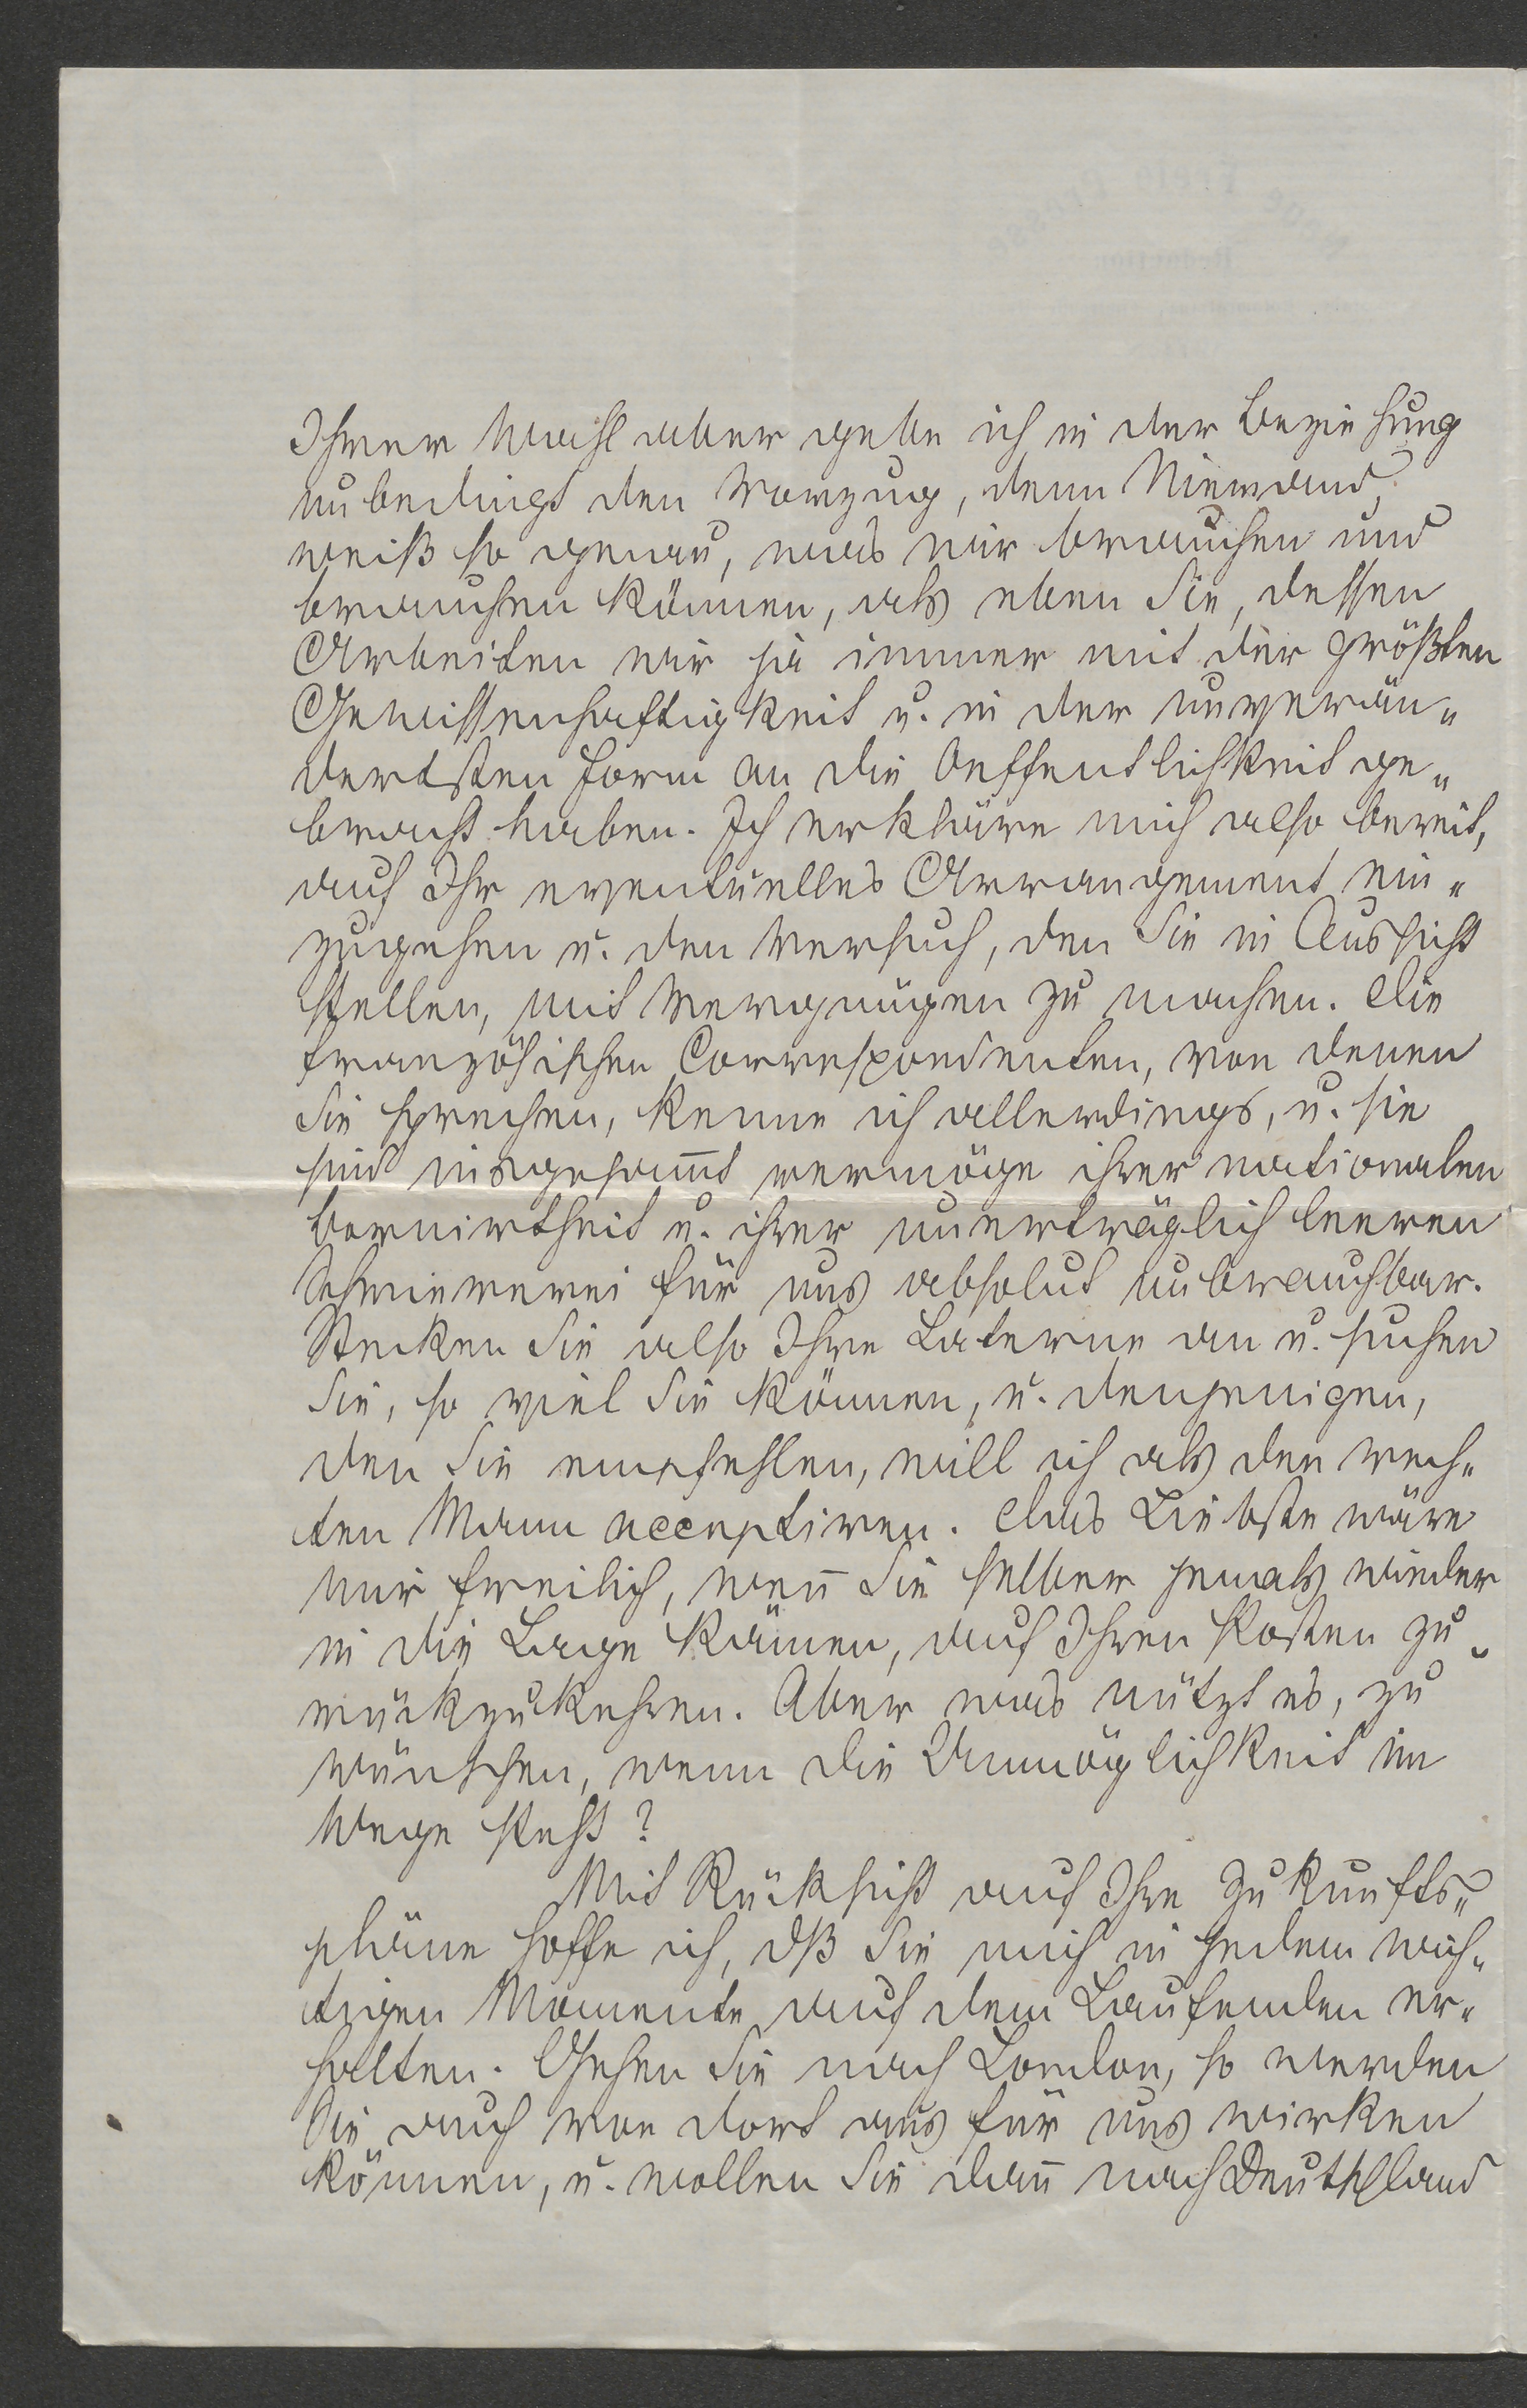 Ihrer Wahl aber gebe ich in der Beziehung
unbedingt den Vorzug, denn Niemand
weiß so genau, was wir brauchen und
brauchen können, als eben Sie, dessen
Arbeiten wir ja immer mit der größten
Gewissenhaftigkeit u. in der unverän„
dertsten Form an die Oeffentlichkeit ge„
bracht haben. Ich erkläre mich also bereit,
auf Ihr eventuelles Arrangement ein„
zugehen u. den Versuch, den Sie in Aussicht
stellen, mit Vergnügen zu machen. Die
französischen Correspondenten, von denen
Sie sprechen, kenne ich allerdings, u. sie
sind insgesam̅t vermöge ihrer nationalen
Bornirtheit u. ihrer unerträglich leeren
Schmiererei für uns absolut unbrauchbar.
Stecken Sie also Ihre Laterne an u. suchen
Sie, so viel Sie können, u. denjenigen,
den Sie empfehlen, will ich als den rech„
ten Mann acceptiren. Das Liebste wäre
mir freilich, wen̅ Sie selber jemals wieder
in die Lage kämen, auf Ihren Posten zu„
rückzukehren. Aber was nützt es, zu
wünschen, wenn die Unmöglichkeit im
Wege steht?
Mit Rücksicht auf Ihre Zukunfts„
pläne hoffe ich, dß Sie mich in jedem wich„
tigen Momente auf dem Laufenden er„
halten. Gehen Sie nach London, so werden
Sie auch von dort aus für uns wirken
können, u. wollen Sie dan̅ nach Deutschland